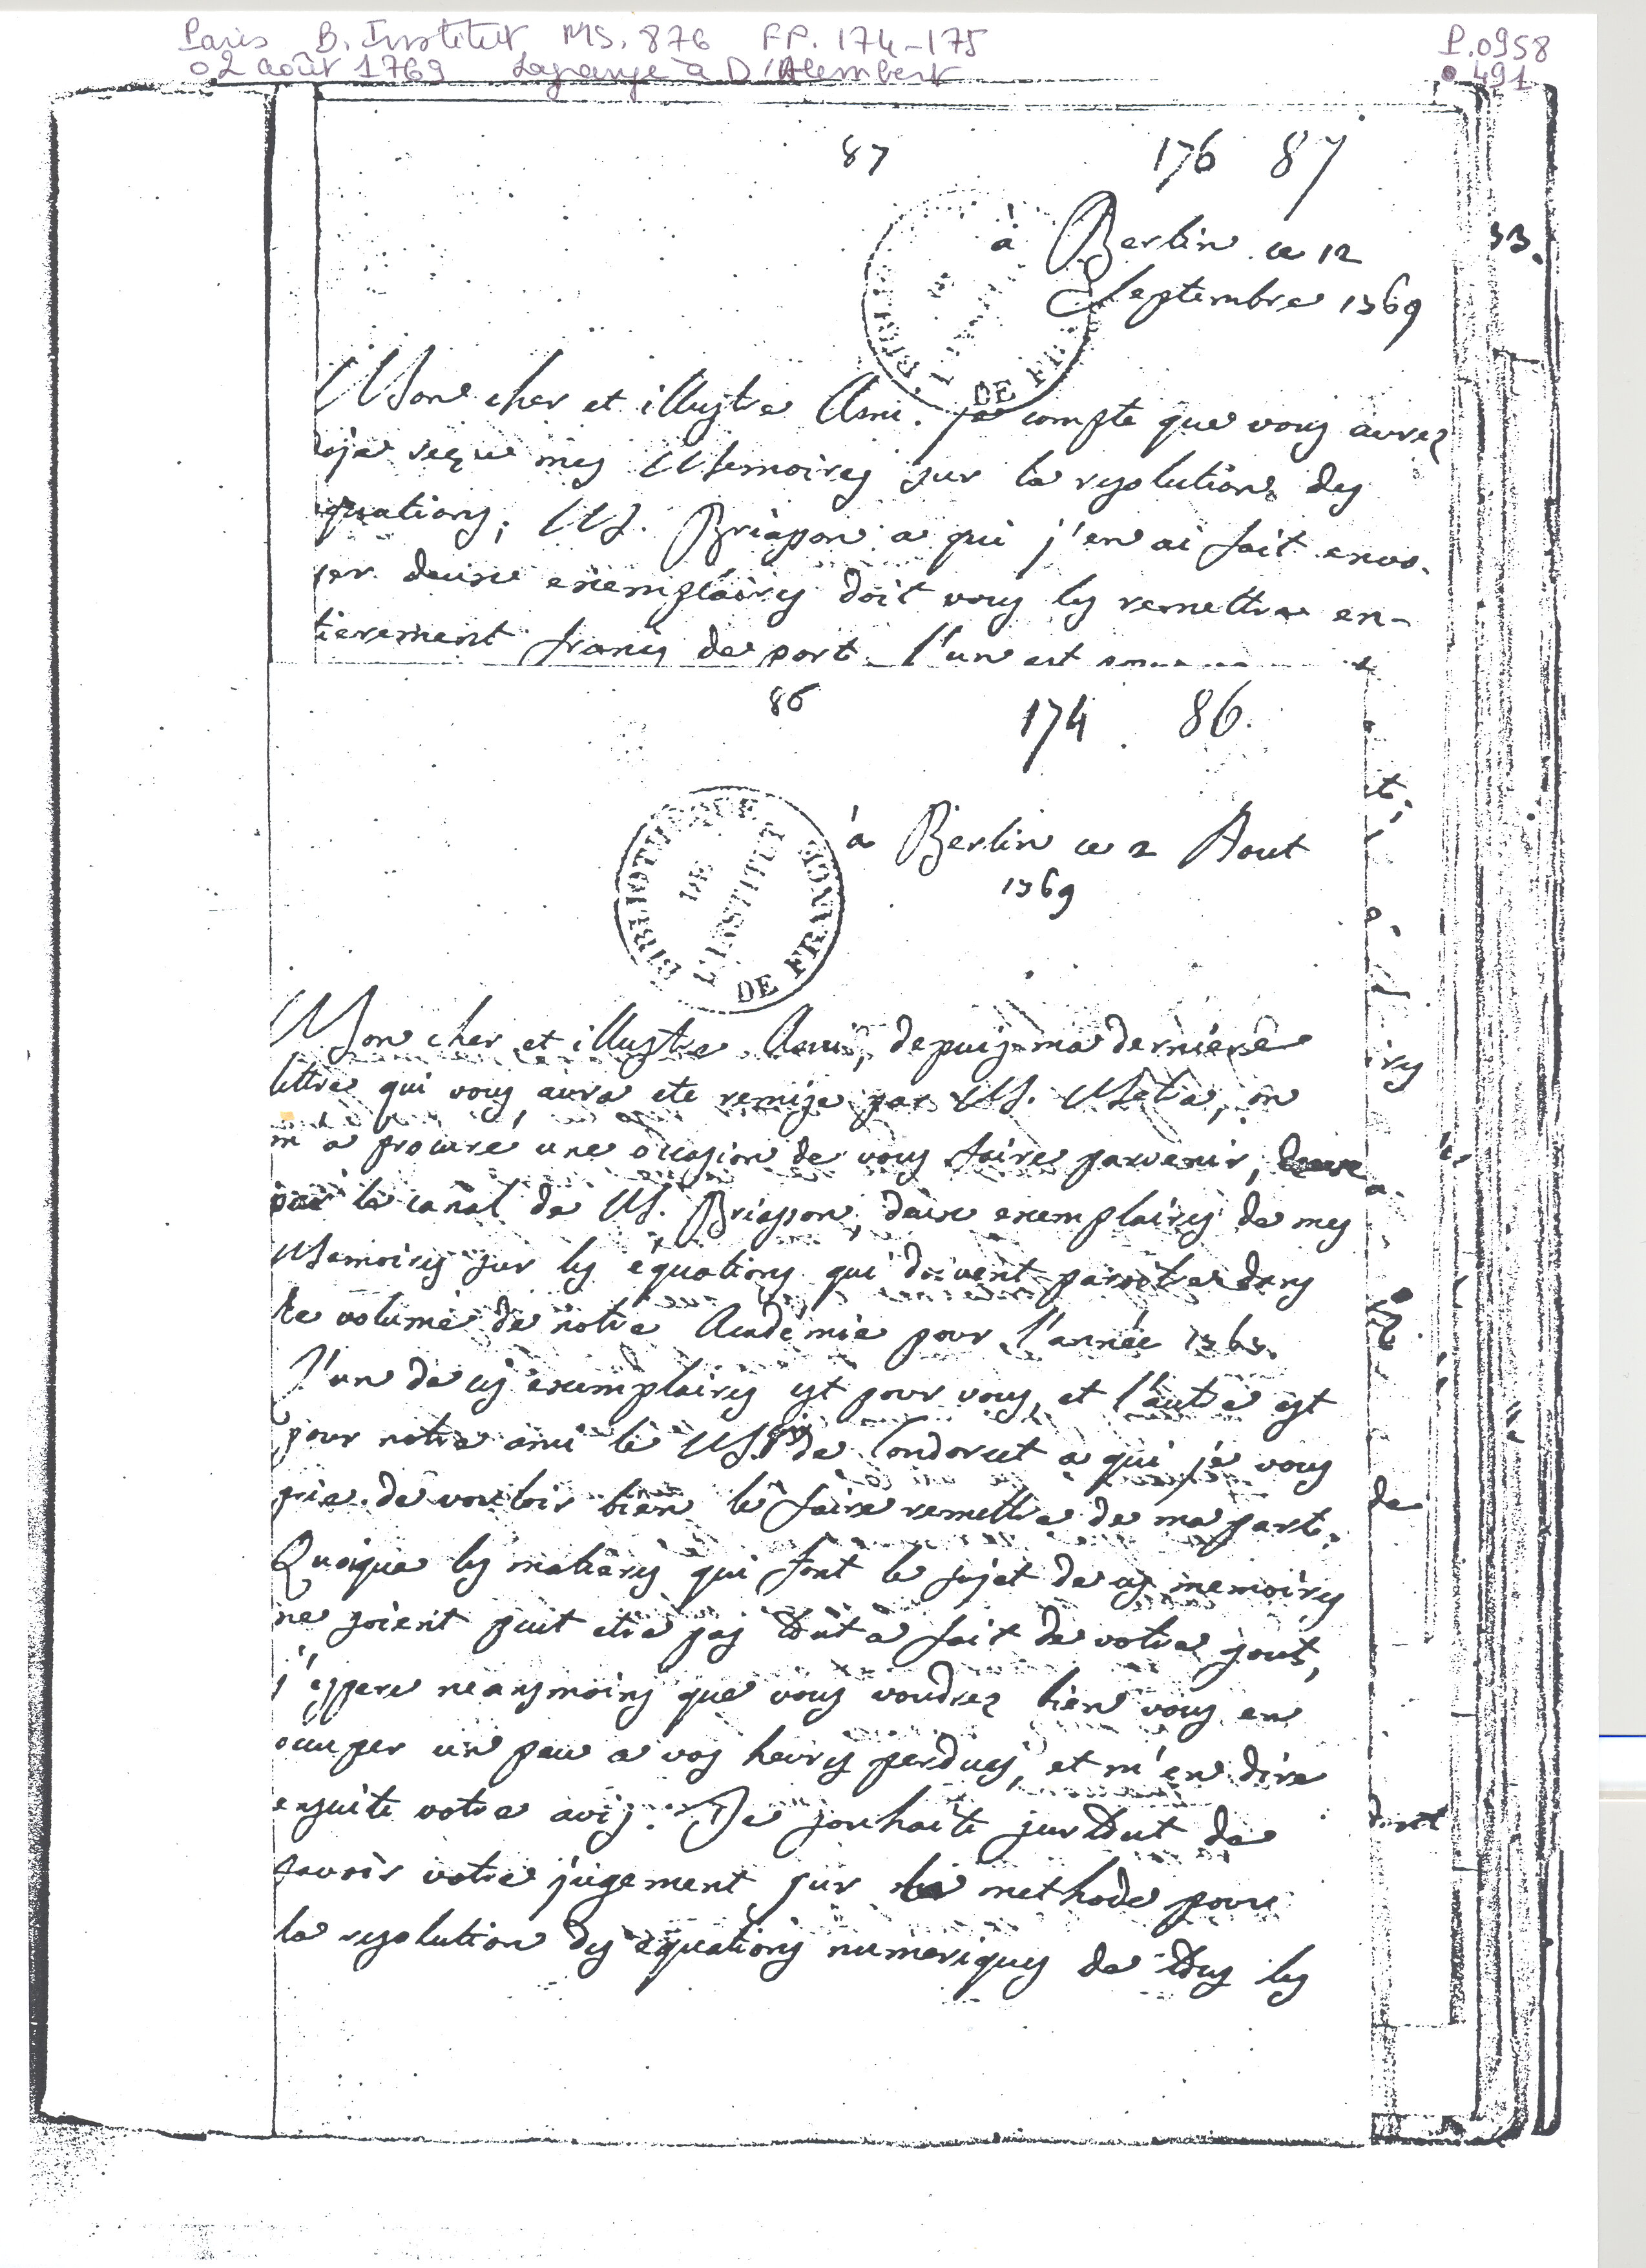 Paris B. Institut MS. 876 FF. 174-175
02 août 1769 Lagrange à D'Alembert
P.0958
491
87
176 87
à Berlin ce 12
Septembre 1769
BIBLIO
DE FR
Mon cher et illustre Ami. Je compte que vous aurez
deja reçu mes Memoires sur la resolution des
equations; M. Briasson a qui j'en ai fait envo-
yer deux exemplaires doit vous les remettre en-
tierement francs de port. l'un est
86
174 86.
BIBLIOTHEQUE
DE
L'INSTITUT
DE FRANCE
à Berlin ce 2 Aout
1769
Mon cher et illustre Ami, depuis ma derniere
lettre qui vous aura ete remise par M. Metra, on
m'a procuré une occasion de vous faire parvenir,
par le canal de M. Briasson, deux exemplaires de mes
Memoires sur les équations qui doivent paroitre dans
le volume de notre Academie pour l'année 1767.
L'un de ces exemplaires est pour vous, et l'autre est
pour notre ami le M. de Condorcet a qui je vous
prie de vouloir bien le faire remettre de ma part.
Quoique les matieres qui font le sujet de ces memoires
ne soient peut etre pas tout a fait de votre gout,
j'espere neansmoins que vous voudrez bien vous en
occuper un peu a vos heures perdues, et m'en dire
ensuite votre avis. Je souhaite surtout de
savoir votre jugement sur la methode pour
la resolution des équations numeriques de tous les
de
dont